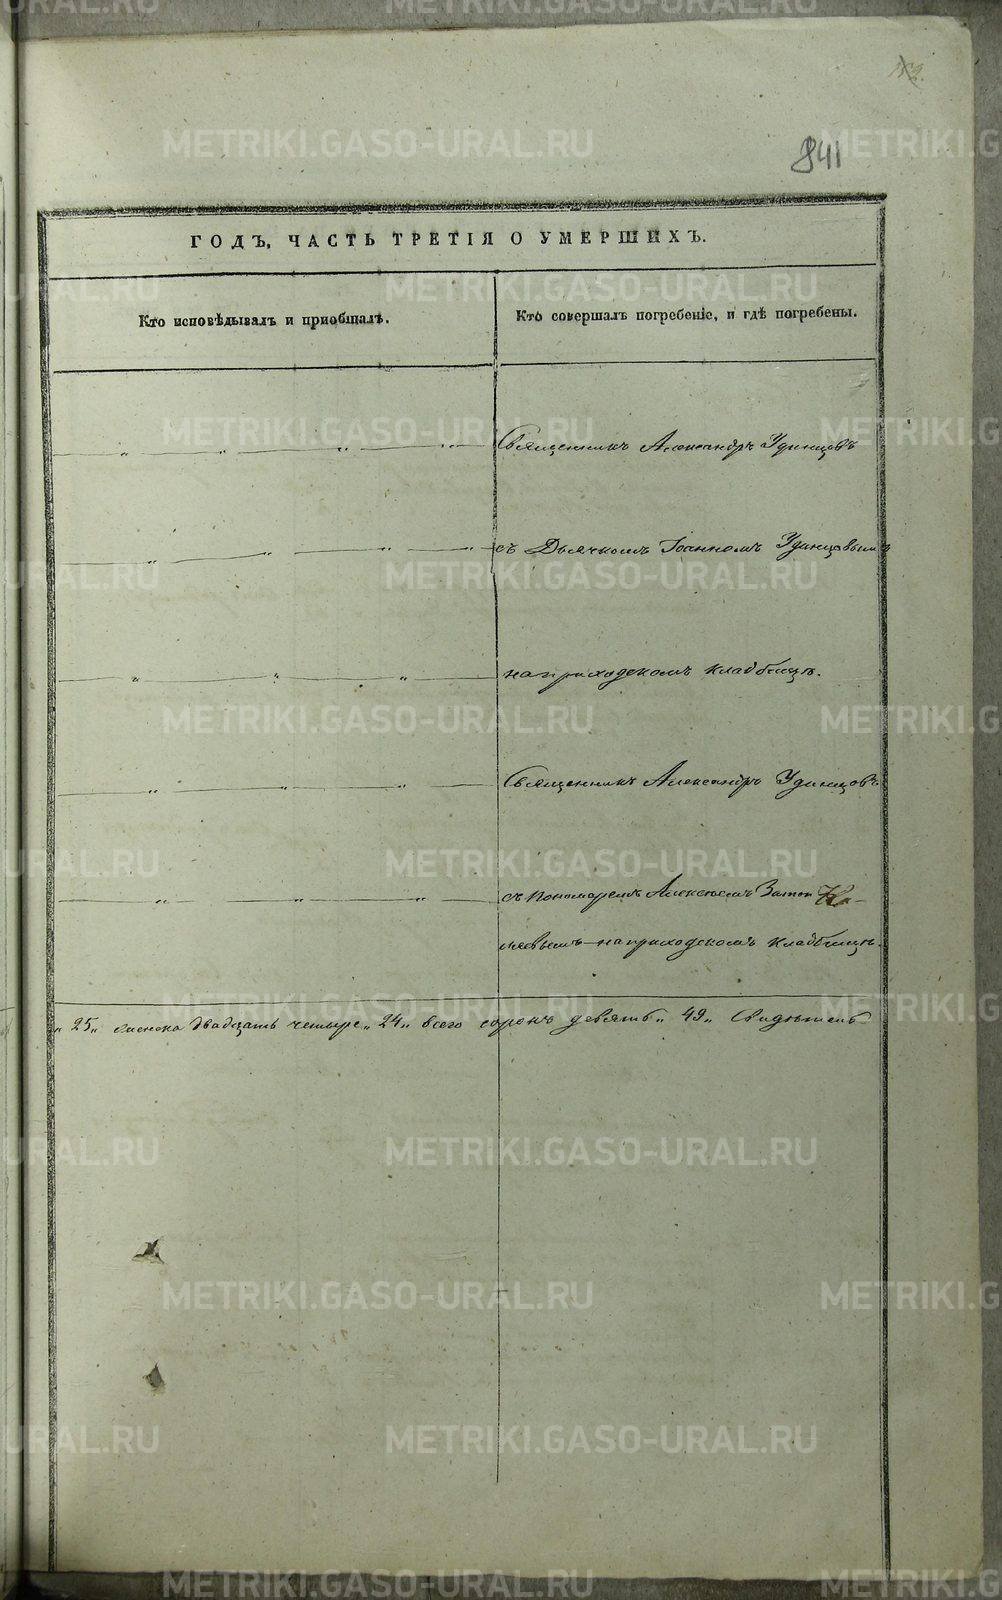 841
ГОДЪ, ЧАСТЬ ТРЕТІЯ О УМЕРШИХЪ.
Кто исповѣдывалъ и приобщалъ.
Кто совершалъ погребеніе, и гдѣ погребены.
Священникъ Александръ Удинцовъ
съ Дьячкомъ Іоанномъ Удинцовымъ
на приходскомъ кладбищѣ.
Священникъ Александръ Удинцовъ
съ пономаремъ Алексѣемъ
на приходскомъ кладбищѣ.
„25„ женска двадцать четыре „24„ всего сорокъ девять „49„
METRIKI.GASO-URAL.RU